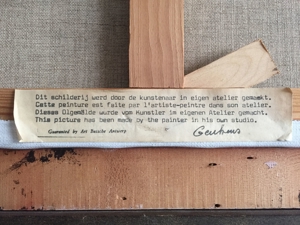 Dit schilderij werd door de kunstenaar in eigen atelier gemaakt.
Cette peinture est faite par l'artiste-peintre dans son atelier.
Dieses Ölgemälde wurde vom Kunstler im eigenen Atelier gemacht.
This picture has been made by the painter in his own studio.
Guaranteed by Art Antwerp